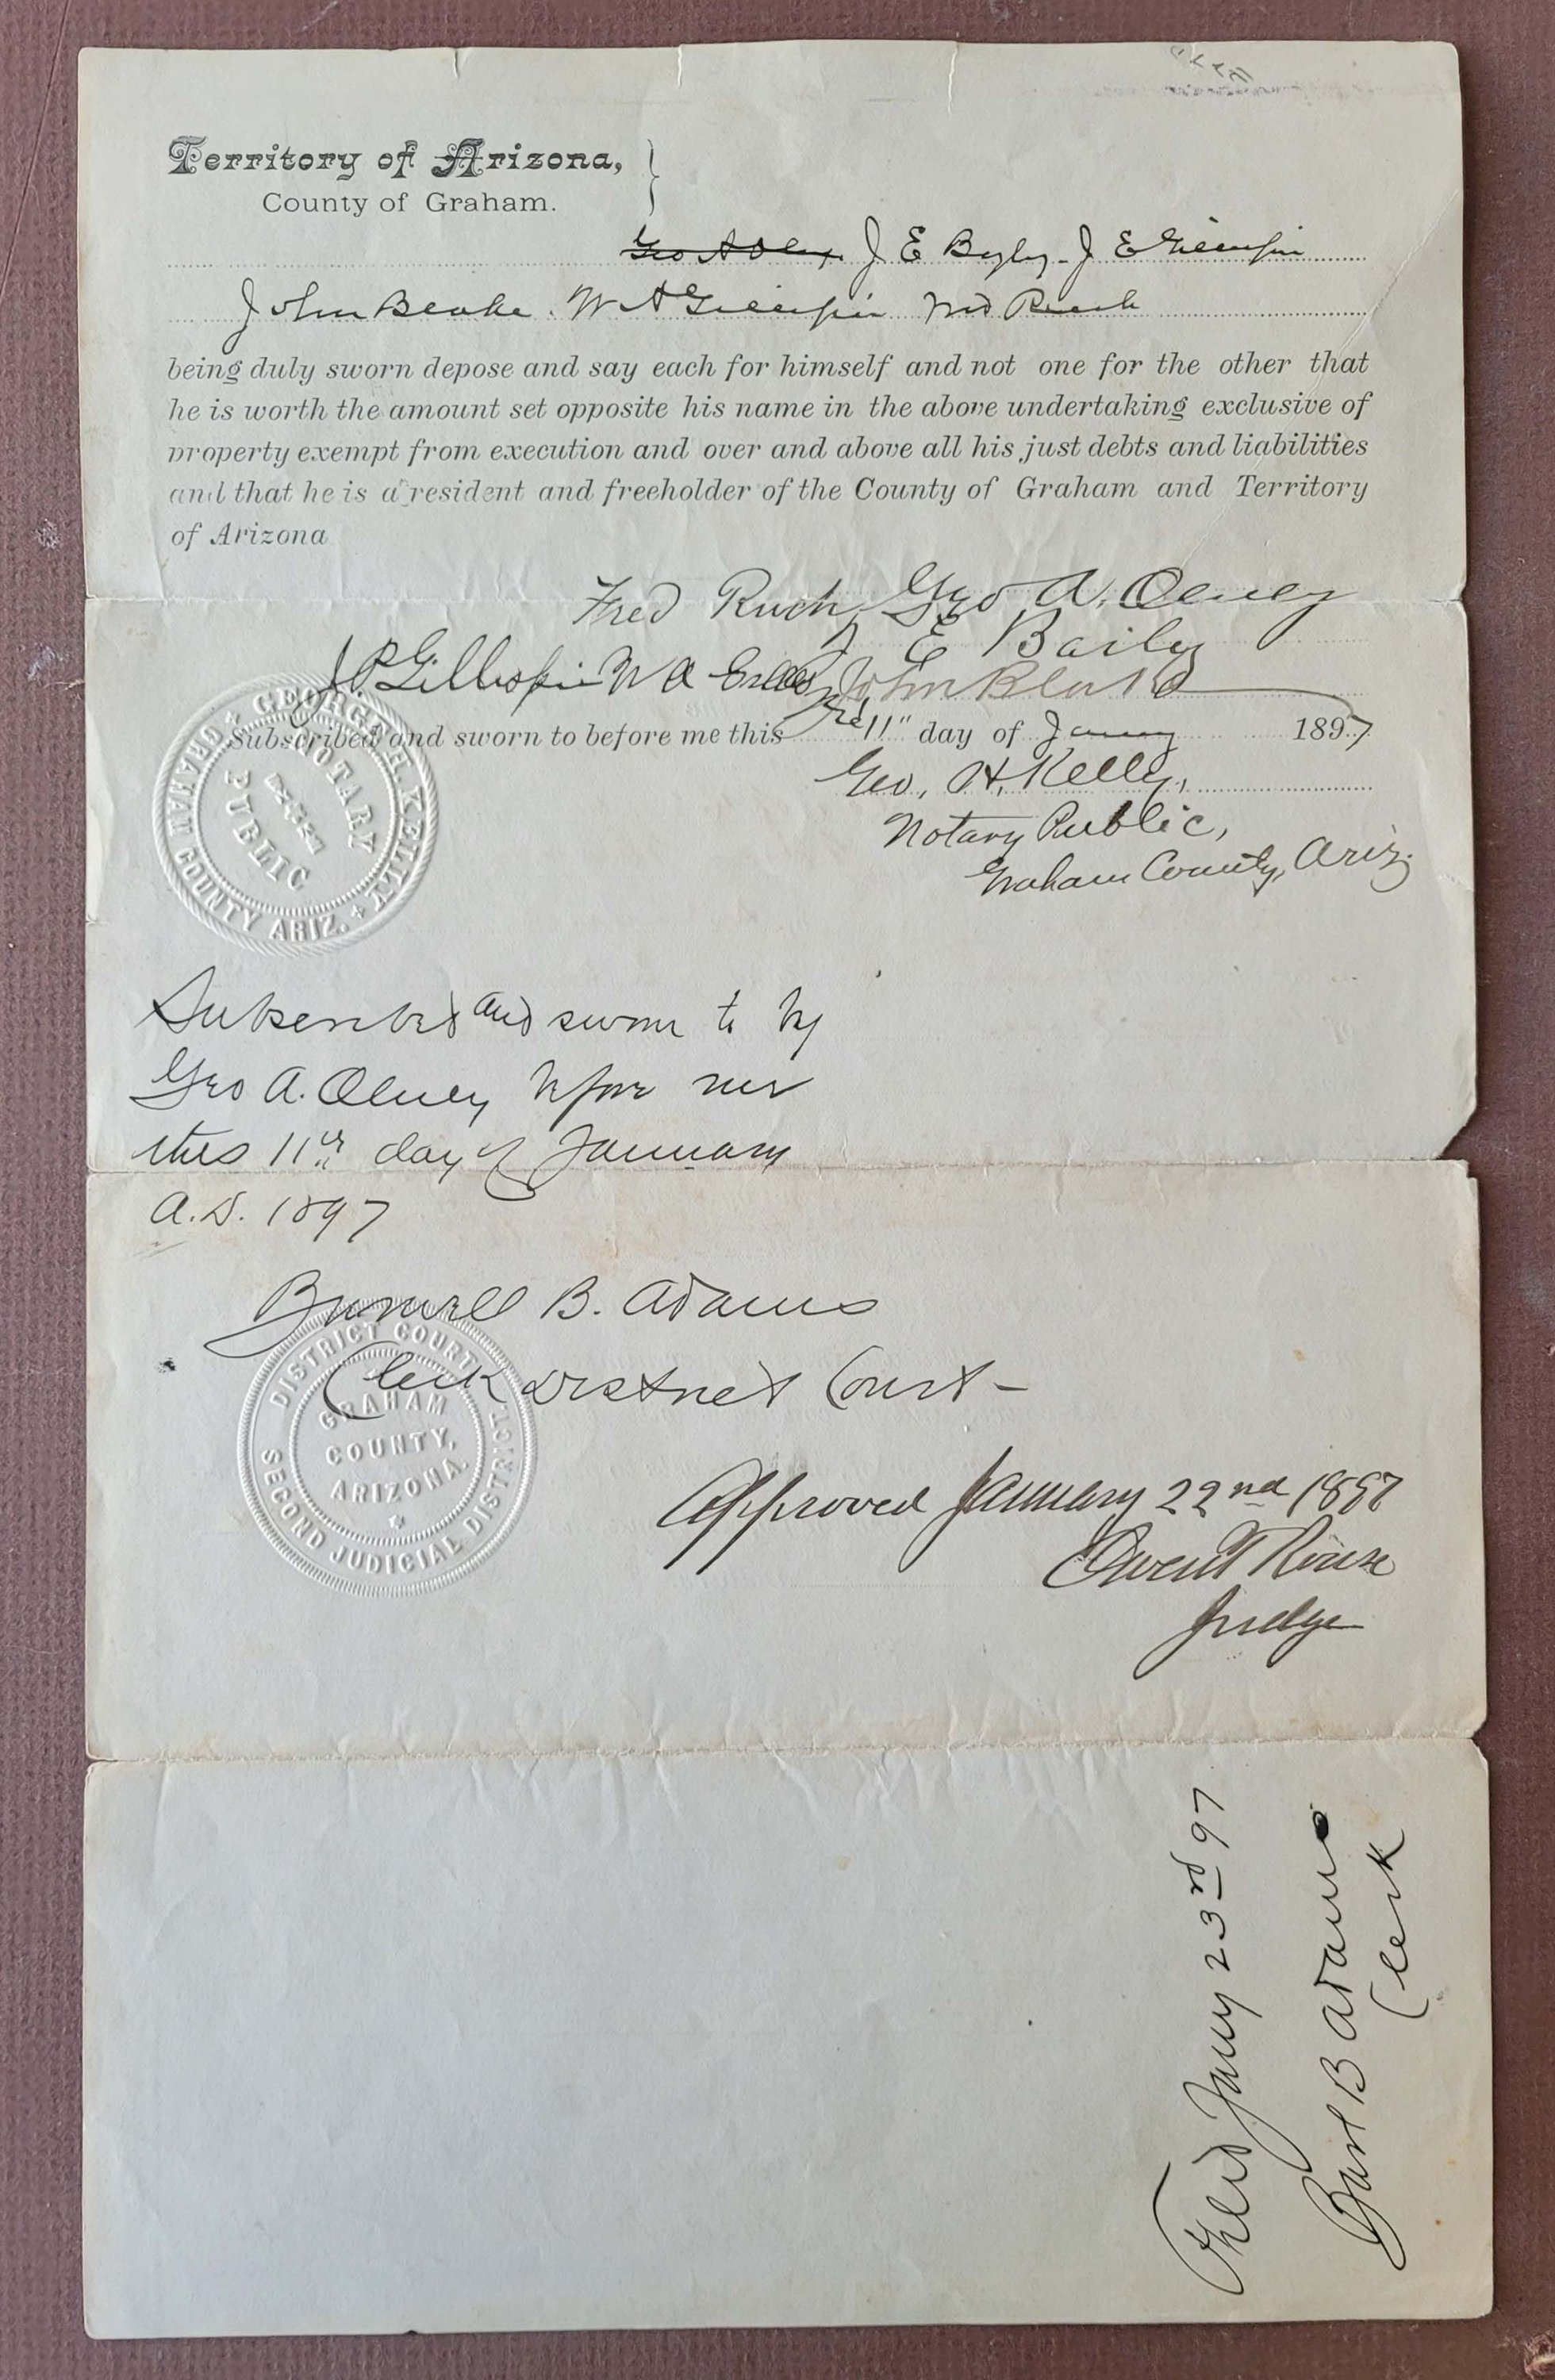 Territory of Arizona,
County of Graham.
J E Bayley - J E Gillespie
John Blake. W A Gillespie
being duly sworn depose and say each for himself and not one for the other that
he is worth the amount set opposite his name in the above undertaking exclusive of
property exempt from execution and over and above all his just debts and liabilities
and that he is a resident and freeholder of the County of Graham and Territory
of Arizona
Fred Ruch Geo A. Olney
J E Baily
J P Gillespie W A John Blake
Subscribed and sworn to before me this 11" day of January 1897
Geo. H. Kelly,
Notary Public,
Graham County, Ariz.
GEORGE H. KELLY
GRAHAM COUNTY ARIZ.
NOTARY
PUBLIC
Subscribed and sworn to by
Geo A. Olney before me
this 11th day of January
A.D. 1897
Burwell B. Adams
Clerk District Court -
DISTRICT COURT
SECOND JUDICIAL DISTRICT.
GRAHAM
COUNTY,
ARIZONA.
Approved January 22nd 1897
Owen T Rouse
Judge
Filed Jany 23rd 97
Burl B Adams
Clerk